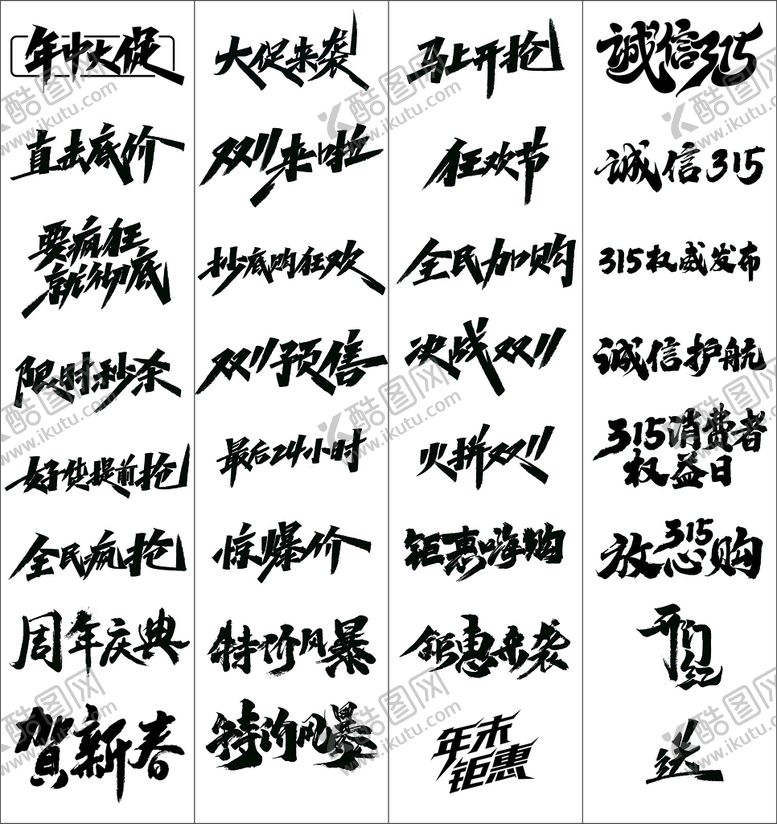 年中大促
直击底价
要疯狂
就彻底
限时秒杀
好货提前抢
全民疯抢
周年庆典
贺新春
大促来袭
双11来啦
抄底购狂欢
双11预售
最后24小时
惊爆价
特价风暴
特价风暴
马上开抢
狂欢节
全民加购
决战双11
火拼双11
钜惠嗨购
钜惠来袭
年末
钜惠
誠信315
诚信315
315权威发布
诚信护航
315消费者
权益日
315
放心购
开门
红
送
酷图网
www.ikutu.com